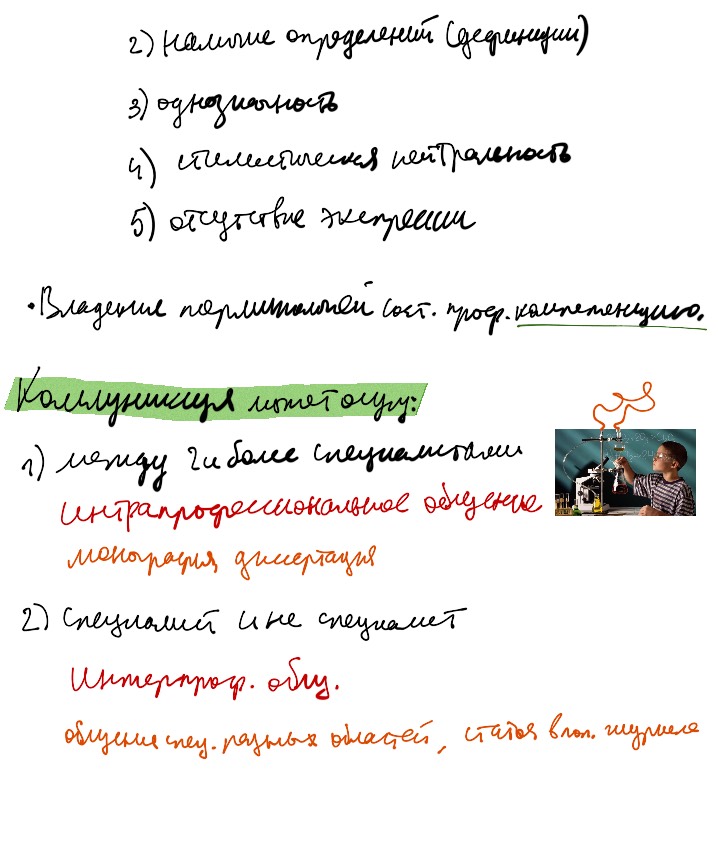 2) наличие определений (дефиниции)
3) однозначность
4) стилистическая нейтральность
5) отсутствие экспрессии
• Владение терминологией сост. проф. компетенцию.
Коммуникация может осущ:
1) между 2 и более специалистами
интрапрофессиональное общение
монография, диссертация
2) Специалист и не специалист
Интерпроф. общ.
общение спец. разных областей, статья в поп. журнале